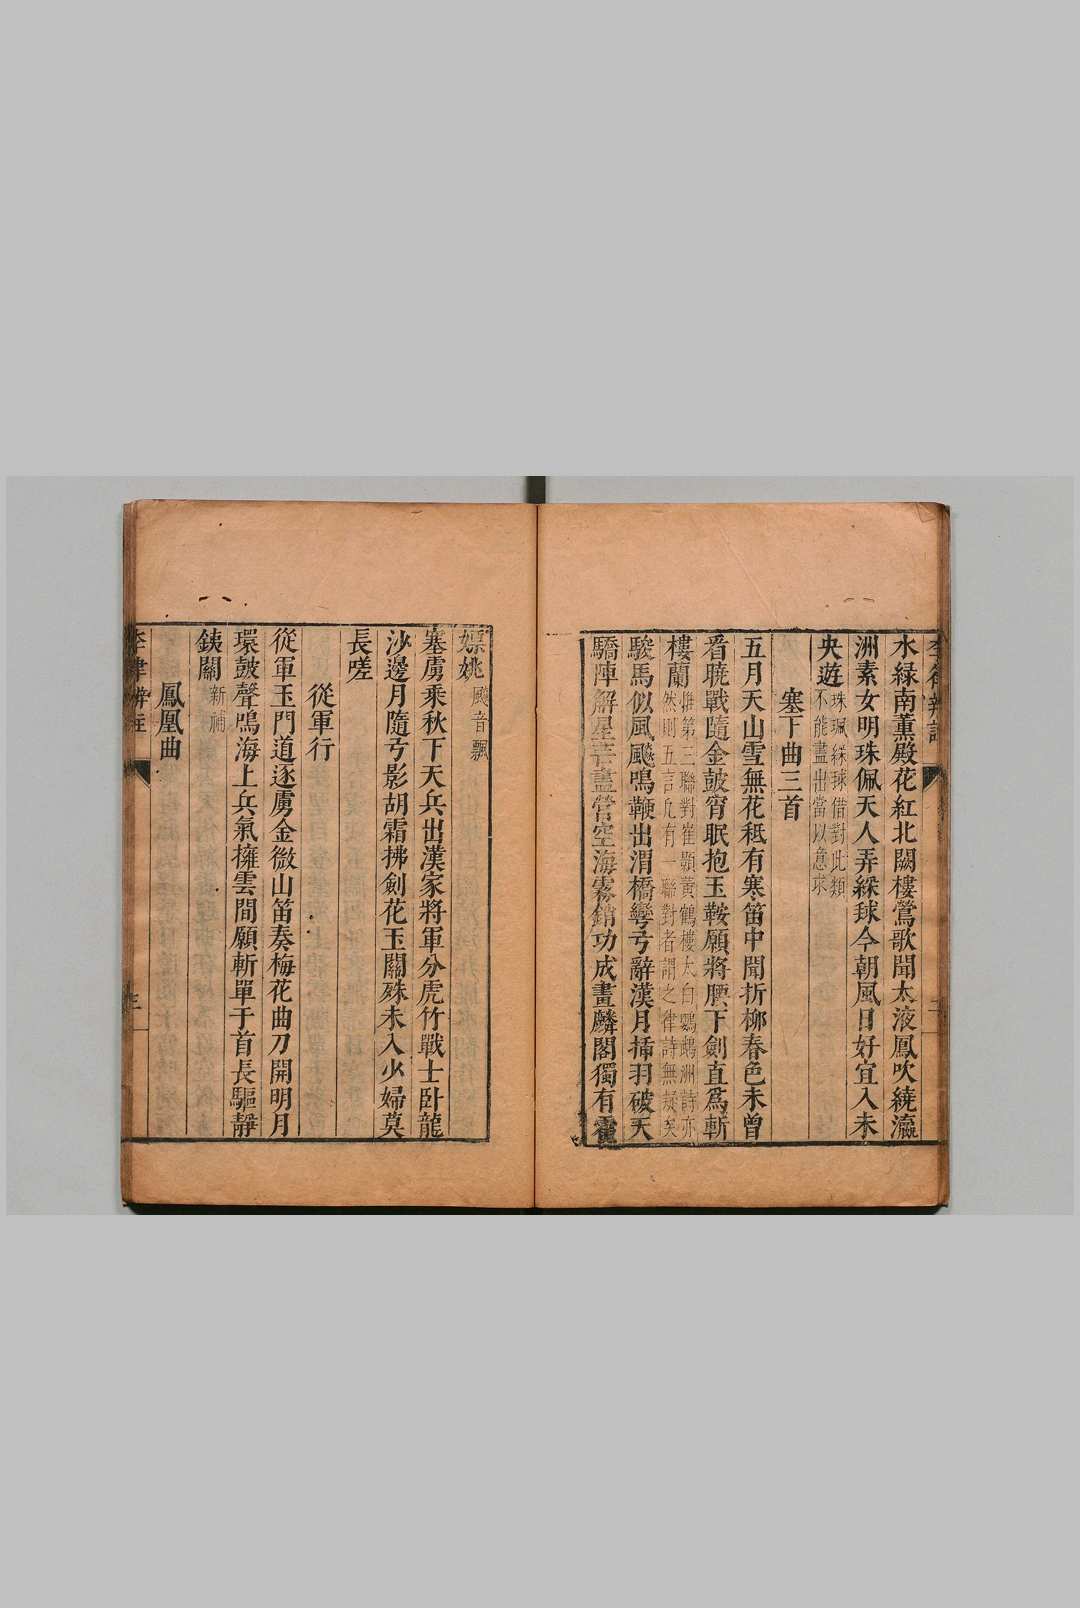 水緑南薰殿花紅北闕樓鶯歌聞太液鳳吹繞瀛
洲素女明珠佩天人弄綵毬今朝風日好宜入未
央遊 珠珮綵毬借對此類
不能盡出當以意求
塞下曲三首
五月天山雪無花秪有寒笛中聞折柳春色未曾
看曉戰隨金鼓宵眠抱玉鞍願將腰下劍直爲斬
樓蘭 推第三聯對崔顥黃鶴樓太白鸚鵡洲詩亦
然則五言凡有一聯對者謂之律詩無疑矣
駿馬似風飈鳴鞭出渭橋彎弓辭漢月揷羽破天
驕陣解星芒盡營空海霧銷功成畫麟閣獨有霍
嫖姚 飈音飄
塞虜乘秋下天兵出漢家將軍分虎竹戰士卧龍
沙邊月隨弓影胡霜拂劍花玉關殊未入少婦莫
長嗟
從軍行
從軍玉門道逐虜金微山笛奏梅花曲刀開明月
環鼓聲鳴海上兵氣擁雲間願斬單于首長驅靜
鐵關 新補
鳳凰曲
李律辨註